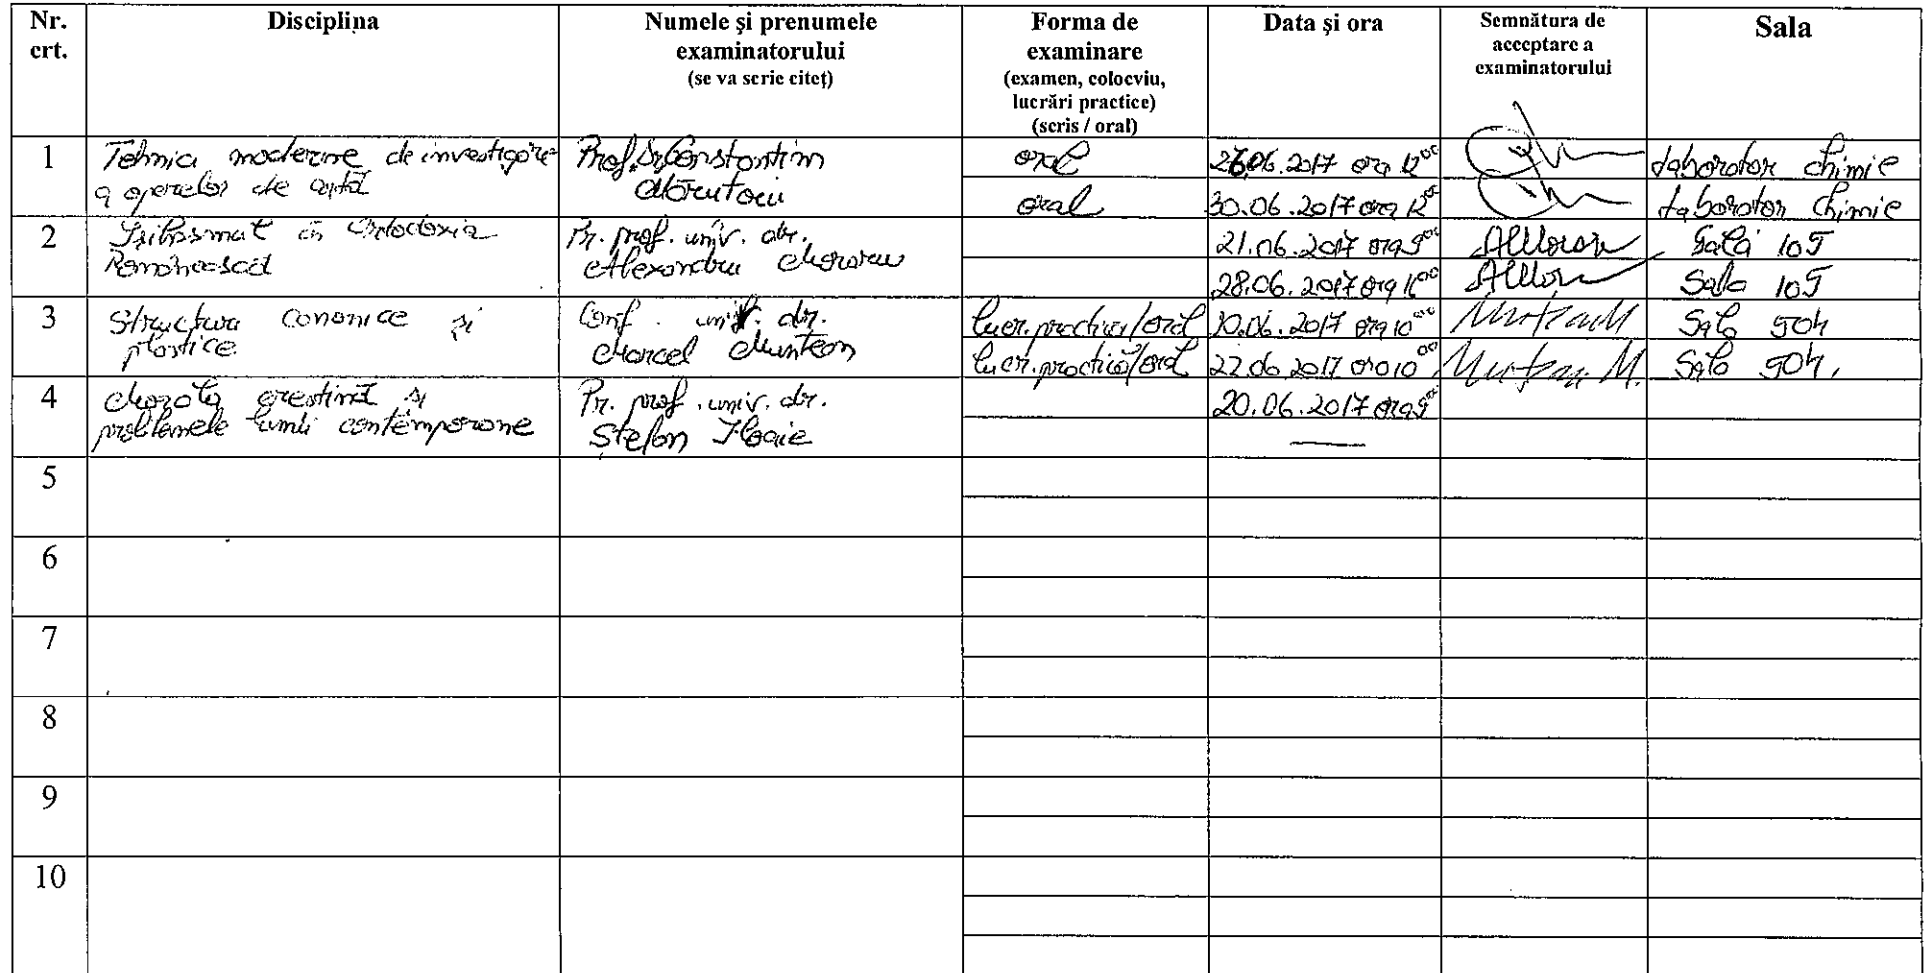 Nr. crt.
Disciplina
Numele și prenumele
examinatorului
(se va scrie citeț)
Forma de
examinare
(examen, colocviu,
lucrări practice)
(scris / oral)
Data și ora
Semnătura de
acceptare a
examinatorului
Sala
1
Tehnici moderne de investigare
a operelor de artă
Prof. Dr. Constantin
Măruțoiu
oral
26.06.2017 ora 12⁰⁰
Laborator Chimie
oral
30.06.2017 ora 12⁰⁰
Laborator Chimie
2
în Ortodoxia
Românească
Pr. prof. univ. dr.
Alexandru Moraru
21.06.2017 ora 9⁰⁰
Sala 105
28.06.2017 ora
Sala 105
3
Structura canonice și
plastice
Conf. univ. dr.
Marcel Muntean
lucr. practică/oral
20.06.2017 ora 10⁰⁰
Sala 504
lucr. practică/oral
22.06.2017 ora 10⁰⁰
Muntean M.
Sala 504.
4
Morala creștină și
problemele lumii contemporane
Pr. prof. univ. dr.
Ștefan Iloaie
20.06.2017 ora 9⁰⁰
5
6
7
8
9
10